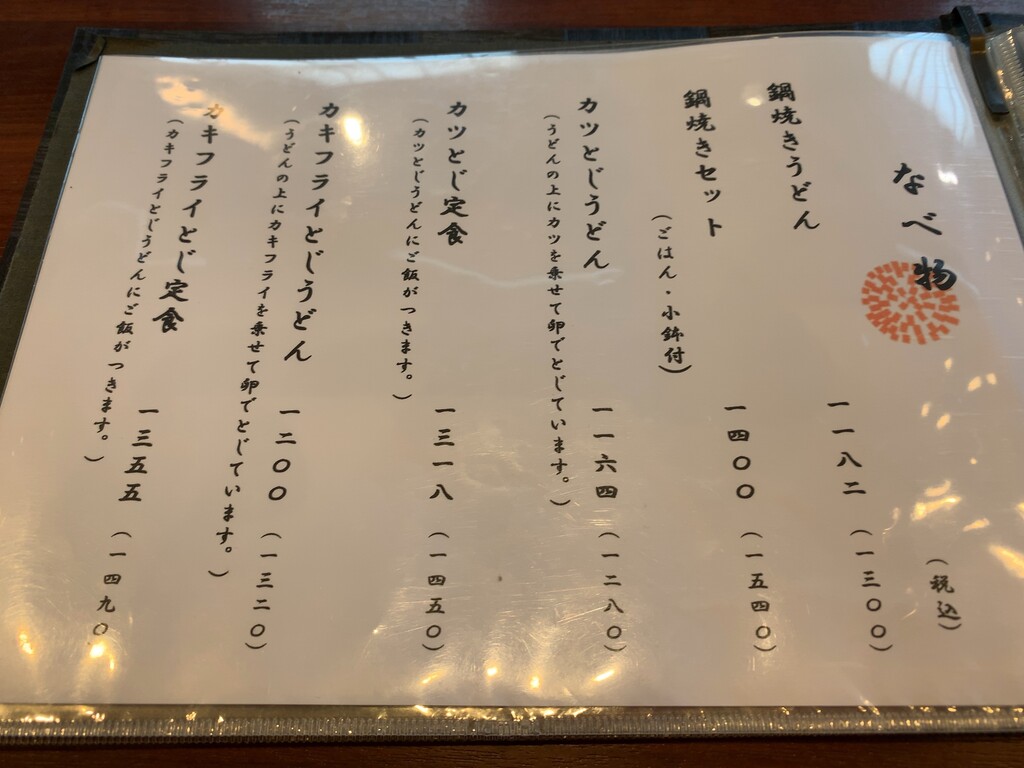 なべ物
(税込)
鍋焼きうどん 一一八二 (一三〇〇)
鍋焼きセット 一四〇〇 (一五四〇)
(ごはん・小鉢付)
カツとじうどん 一一六四 (一二八〇)
(うどんの上にカツを乗せて卵でとじています。)
カツとじ定食 一三一八 (一四五〇)
(カツとじうどんにご飯がつきます。)
カキフライとじうどん 一二〇〇 (一三二〇)
(うどんの上にカキフライを乗せて卵でとじています。)
カキフライとじ定食 一三五五 (一四九〇
(カキフライとじうどんにご飯がつきます。)